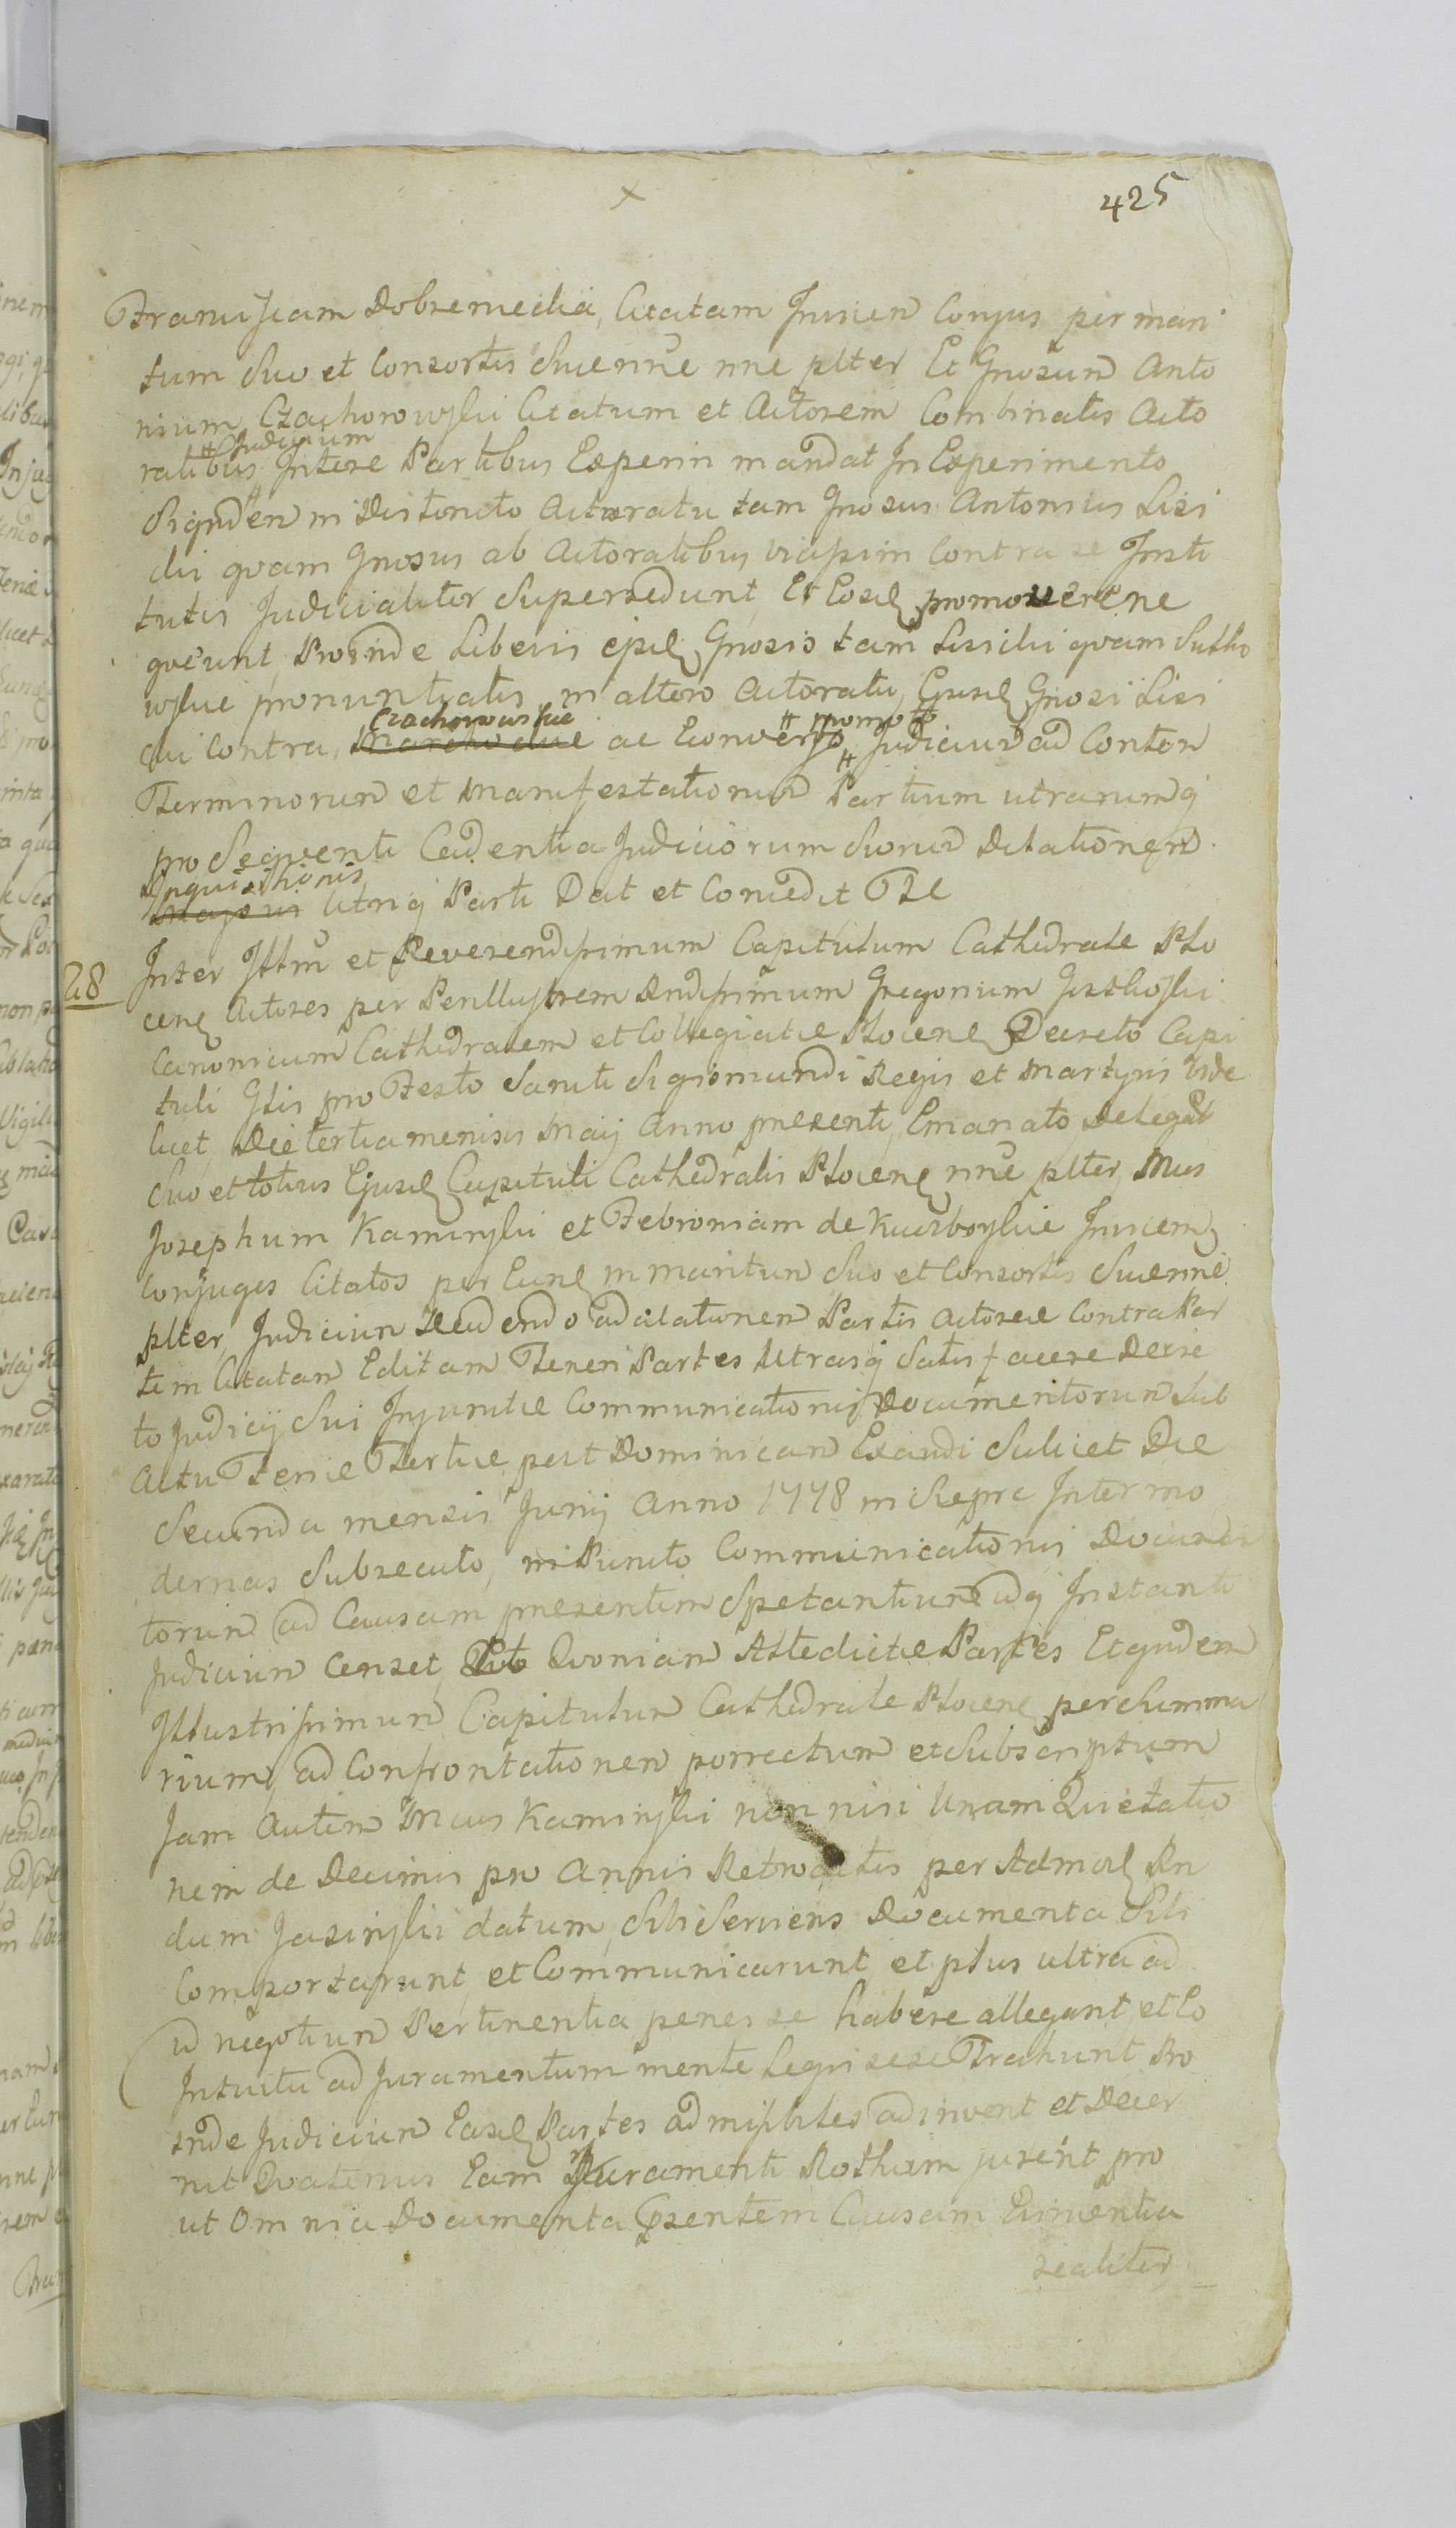 425
Franciscam Dobrzeniecka, Citatam Invicen Conjug per mari
tum Suo et Consortis Suae nne nne plter Et Gnosum Anto
nium Czachorowski Citatum et Actorem Combinatis Acto
ratibus # Judicium Intere Partibus Experiri mandat In Experimento
Siqudem in Distincto Actoratu tam Gnosus Antonius Lisi
cki quam Gnosus ab Actoratibus viapim Contra se Insti
tutis Judicialiter Supersedunt Et Eosd promovere ne
queunt Proinde Liberis ejusd Gnosis tam Lisicki quam Sutko
wskie pronuntiatis in altero Actoratu, Ejusd Gnosi Lisi
cki Contra, Czachorowskie ac Econverso # promoto # Judicium ad Conten
Terminorum et Manifestationum Partium utrarumq
pro Sequenti Cadentia Judiciorum Suorum Dilationem
Inquisitionis Utriq Parti Dat et Concedit Tze
28 Inter Illm et Reverendissimum Capitulum Cathedrale Plo
cens Actores per Perillustrem Rndissimum Gregorium
Canonicum Cathedralem et Collegiatae Plocens Decreto Capi
tuli Gtis pro Festo Sancti Sigismundi Regis et Martyris Vide
licet Die tertia mensis Maij Anno presenti Emanato Delegat
Suo et totius Ejusd Capituli Cathedralis Plocens nne plter Mus
Josephum Kaminski et Febroniam de Kuczborskie Invicem
Conjuges Citatos per Eund m maritum Suo et Consortis Suae nne
plter Judicium Reddendo ad citationem Partis Actoreae Contra Par
tem Citatam Editam Teneri Partes Utrasq Satisfacere Decre
to Judicij Sui Injunctae Communicationis Documentorum Sub
Actu Feriae Tertiae post Dominicam Exaudi Scilicet Die
Secunda mensis Junij Anno 1778 in Sieprc Inter mo
dernas Subsecuto, in Puncto Communicationis Documen
torum ad Causam presentem Spectantium adq Instanti
Judicium Censet, Quoniam Attedictae Partes Et qudem
Illustrissimum Capitulum Cathedrale Plocens per Summa
rium, ad Confrontationem porrectum et Subscriptum
Jam Autem Mcus Kaminski non nisi Unam Quietatio
nem de Decimis pro Annis Retroactis per Admod Rn
dum Jasinski datum, Sibi Serviens Documenta Sibi
Comportarunt et Communicarunt et plus ultra ad
id negotium Pertinentia penes se habere allegant, et Eo
Intuitu ad Juramentum mente Legis sese Trahunt Pro
inde Judicium Easd Partes admissibiles ad invent et Decer
nit Quatenus Eam Juramenti Rotham jurent pro
ut Omnia Documenta Psentem Causam Eimentia
realiter